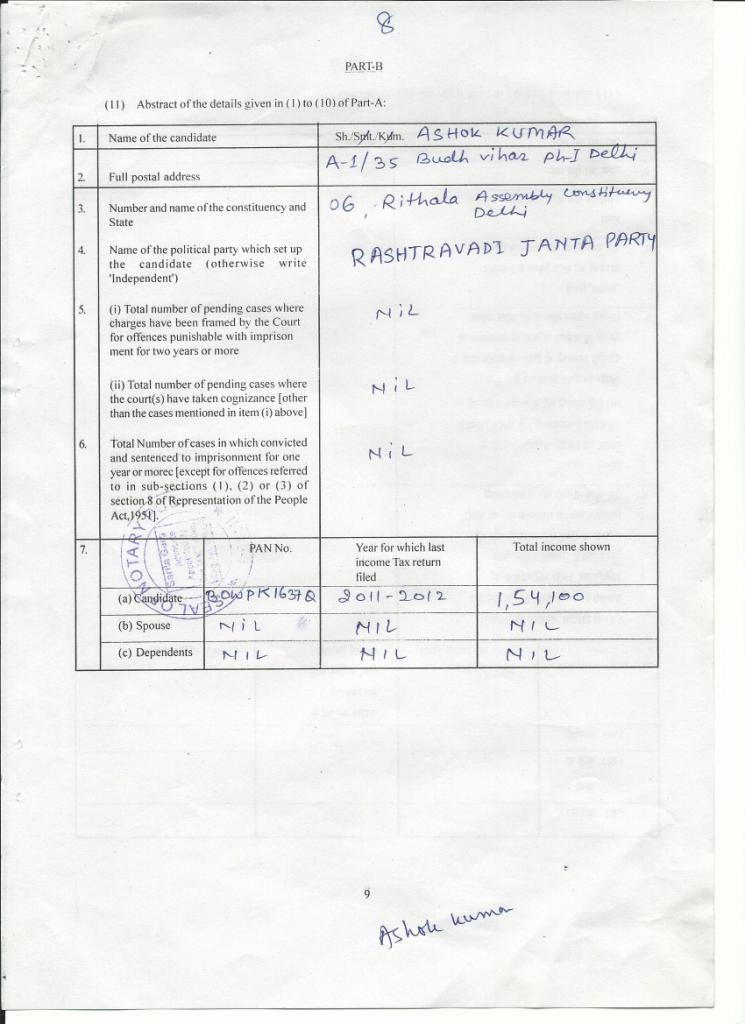 8
PART-B
(11) Abstract of the details given in (1) to (10) of Part-A:
1. Name of the candidate Sh./Smt./Kum. ASHOK KUMAR
2. Full postal address A-1/35 Budh vihar Ph-I Delhi
3. Number and name of the constituency and State 06, Rithala Assembly Constituency Delhi
4. Name of the political party which set up the candidate (otherwise write 'Independent') RASHTRAVADI JANTA PARTY
5. (i) Total number of pending cases where charges have been framed by the Court for offences punishable with imprison ment for two years or more NiL
(ii) Total number of pending cases where the court(s) have taken cognizance [other than the cases mentioned in item (i) above] NiL
6. Total Number of cases in which convicted and sentenced to imprisonment for one year or morec [except for offences referred to in sub-sections (1), (2) or (3) of section 8 of Representation of the People Act,1951]. NiL
SEAL OF NOTARY
7. PAN No. Year for which last income Tax return filed Total income shown
(a) Candidate BOWPK1637Q 2011-2012 1,54,100
(b) Spouse NiL NIL NIL
(c) Dependents NIL NIL NIL
9
Ashok Kumar